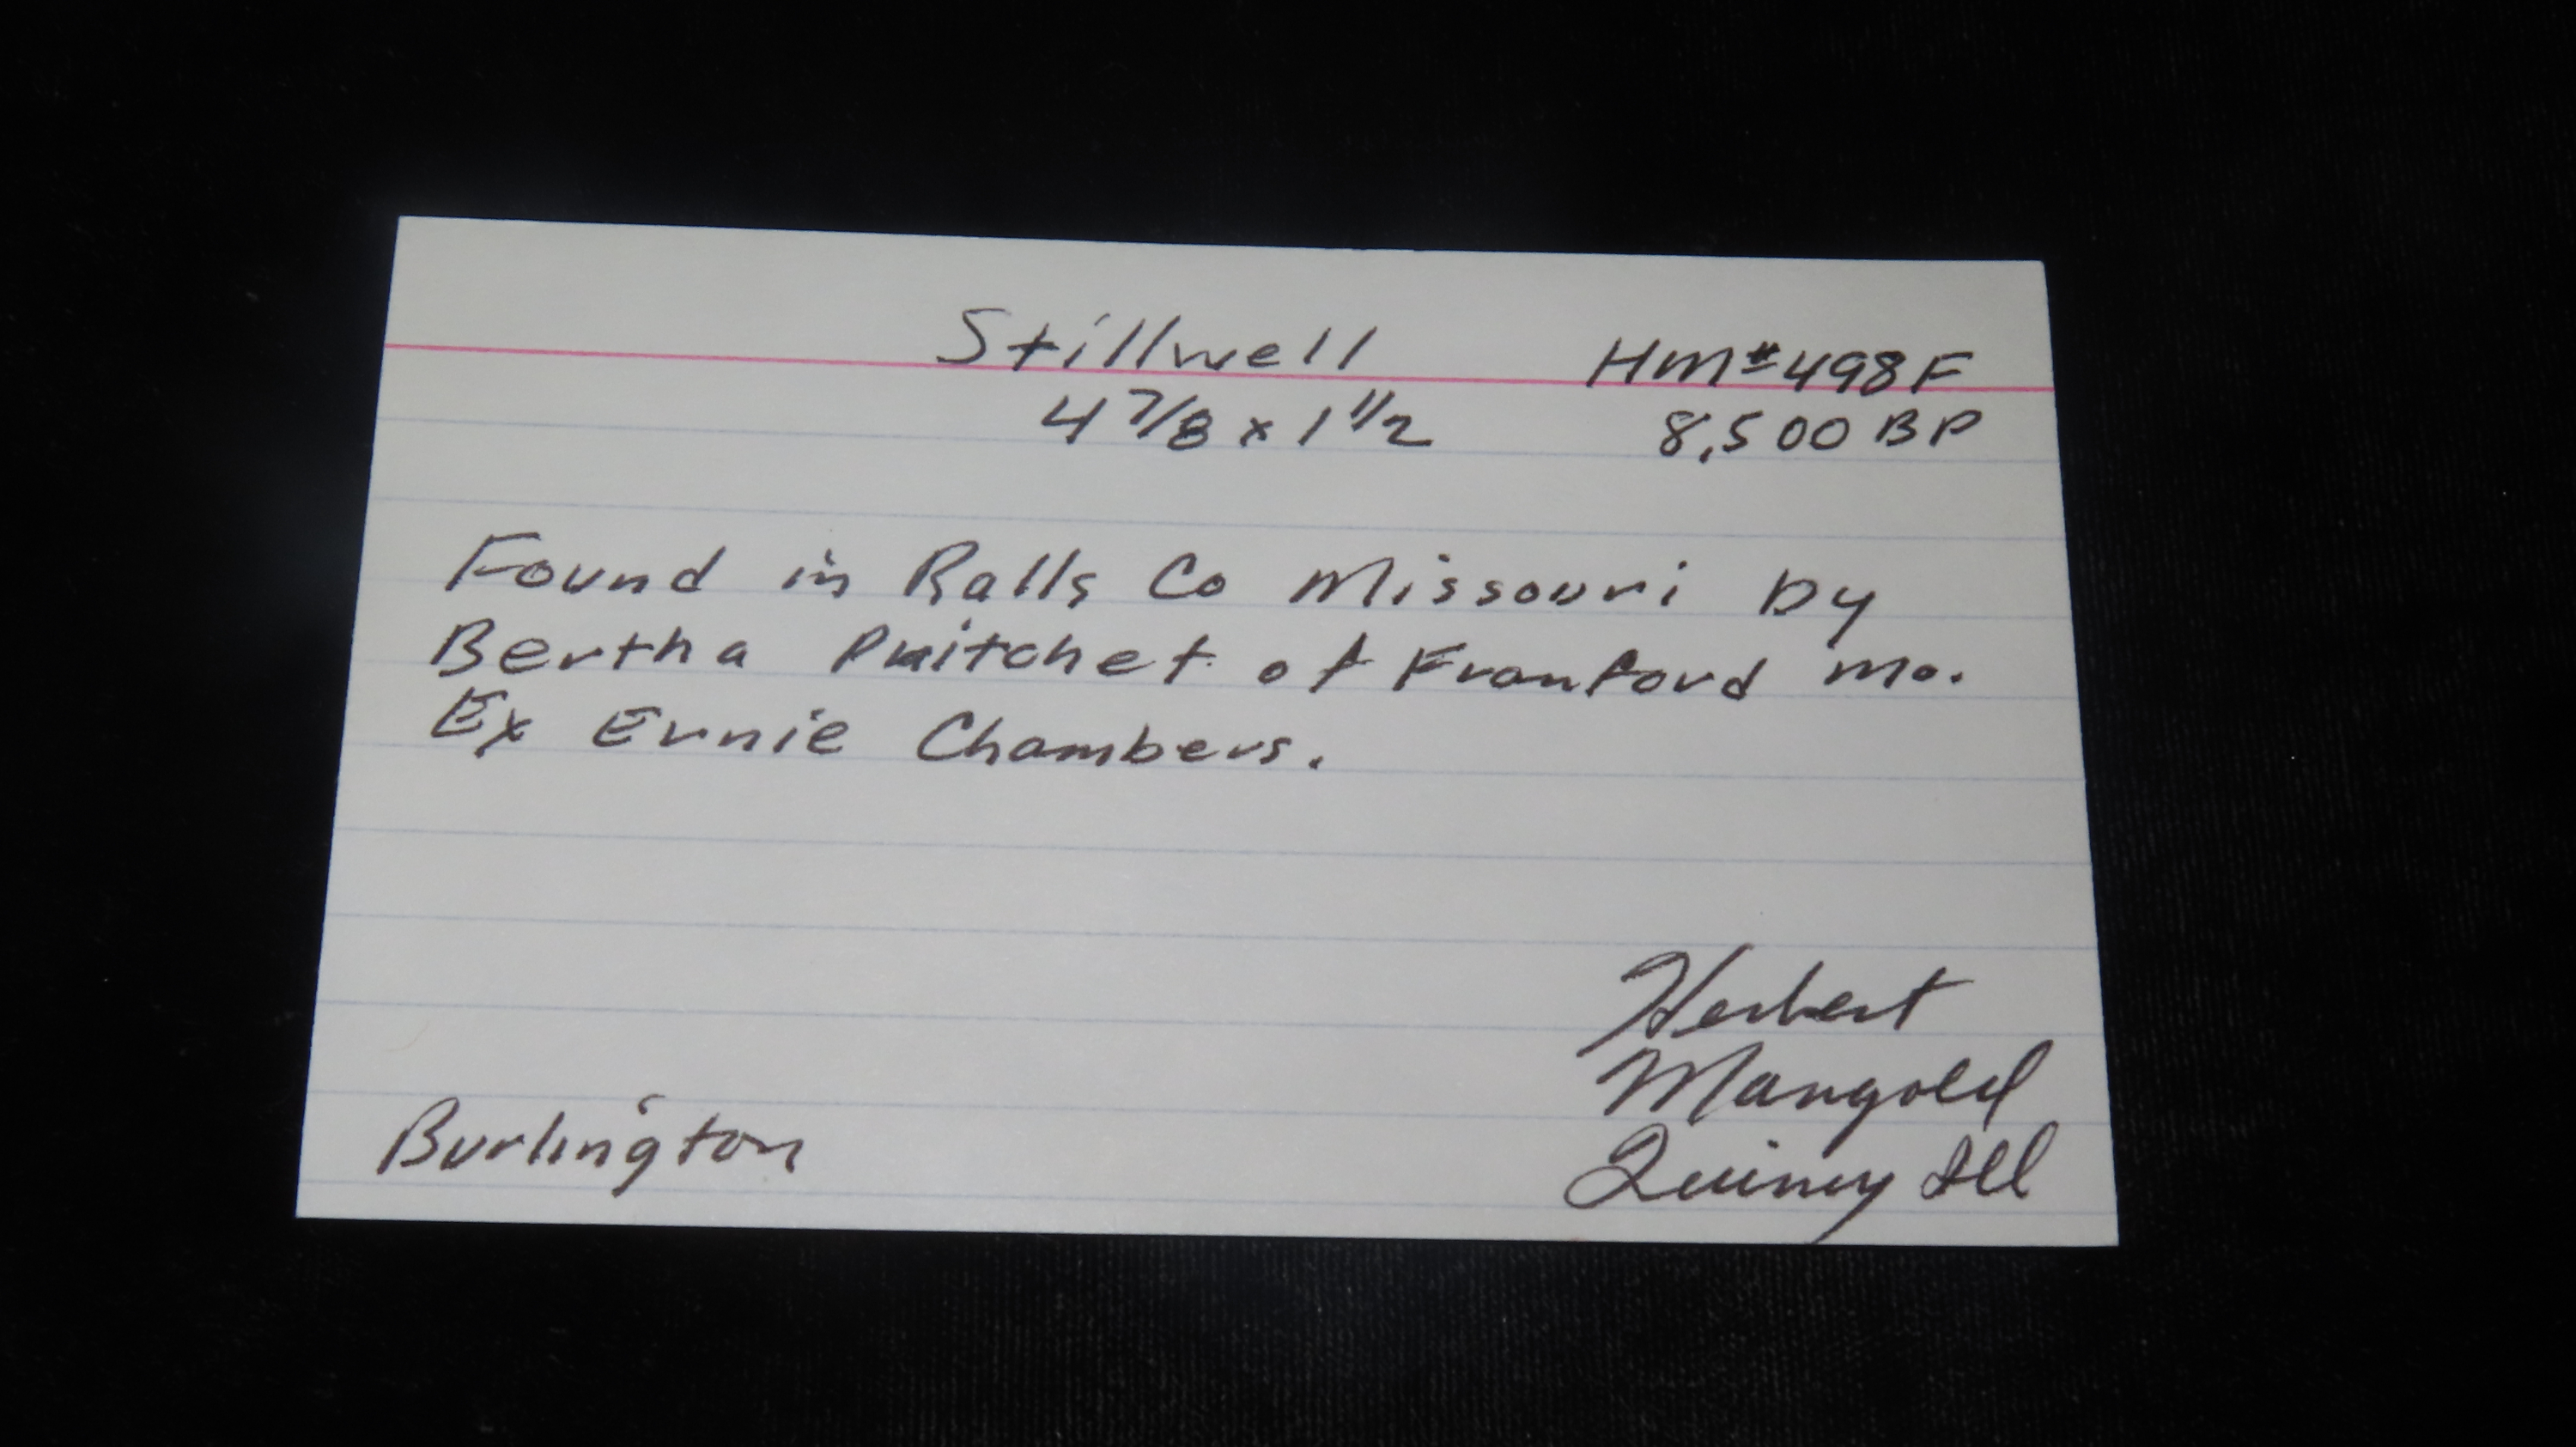 Stillwell HM#498F
4 7/8 x 1 1/2 8,500 BP
Found in Ralls Co Missouri by
Bertha Pritchet of Frankford Mo.
Ex Ernie Chambers.
Herbert
Mangold
Burlington Quincy Ill